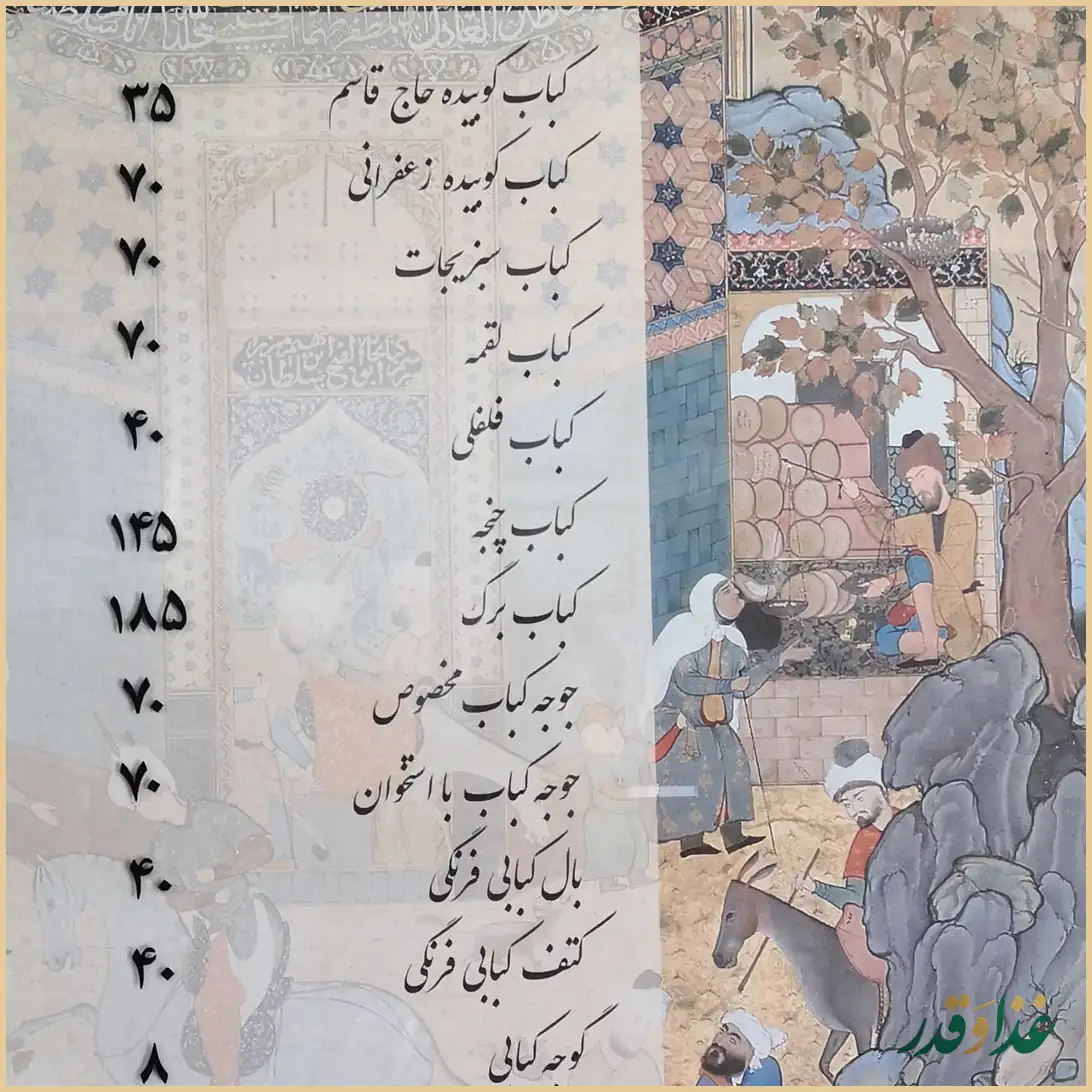 کباب کوبیده حاج قاسم ۳۵
کباب کوبیده زعفرانی ۷۰
کباب سبزیجات ۷۰
کباب لقمه ۷۰
کباب فلفلی ۴۰
کباب چنجه ۱۴۵
کباب برگ ۱۸۵
جوجه کباب مخصوص ۷۰
جوجه کباب با استخوان ۷۰
بال کبابی فرنگی ۴۰
کتف کبابی فرنگی ۴۰
گوجه کبابی ۸
غذا و قدر